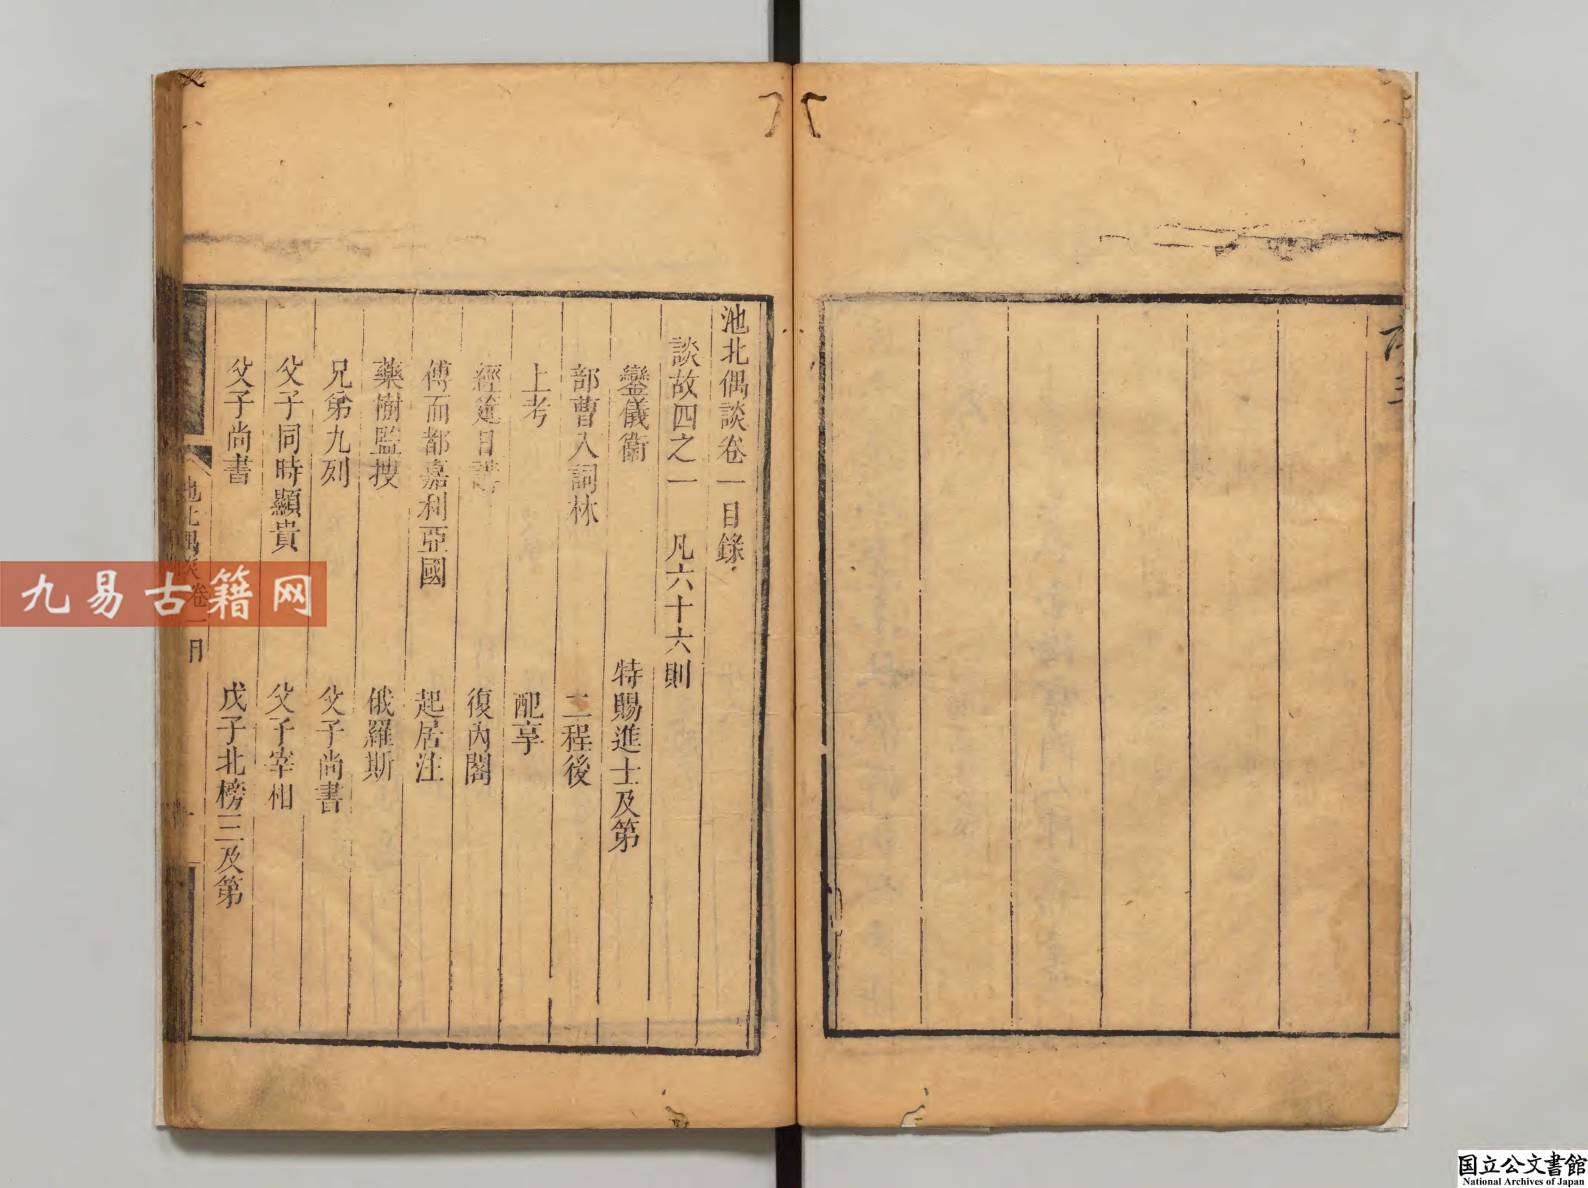 池北偶談卷一目錄
談故四之一　凡六十六則
鑾儀衞　特賜進士及第
部曹入詞林　二程後
上考　配享
經筵日講　復內閣
傅而都嘉利亞國　起居注
藥樹監搜　俄羅斯
兄弟九列　父子尚書
父子同時顯貴　父子宰相
父子尚書　戊子北榜三及第
池北偶談 卷一目
九易古籍网
国立公文書館
National Archives of Japan